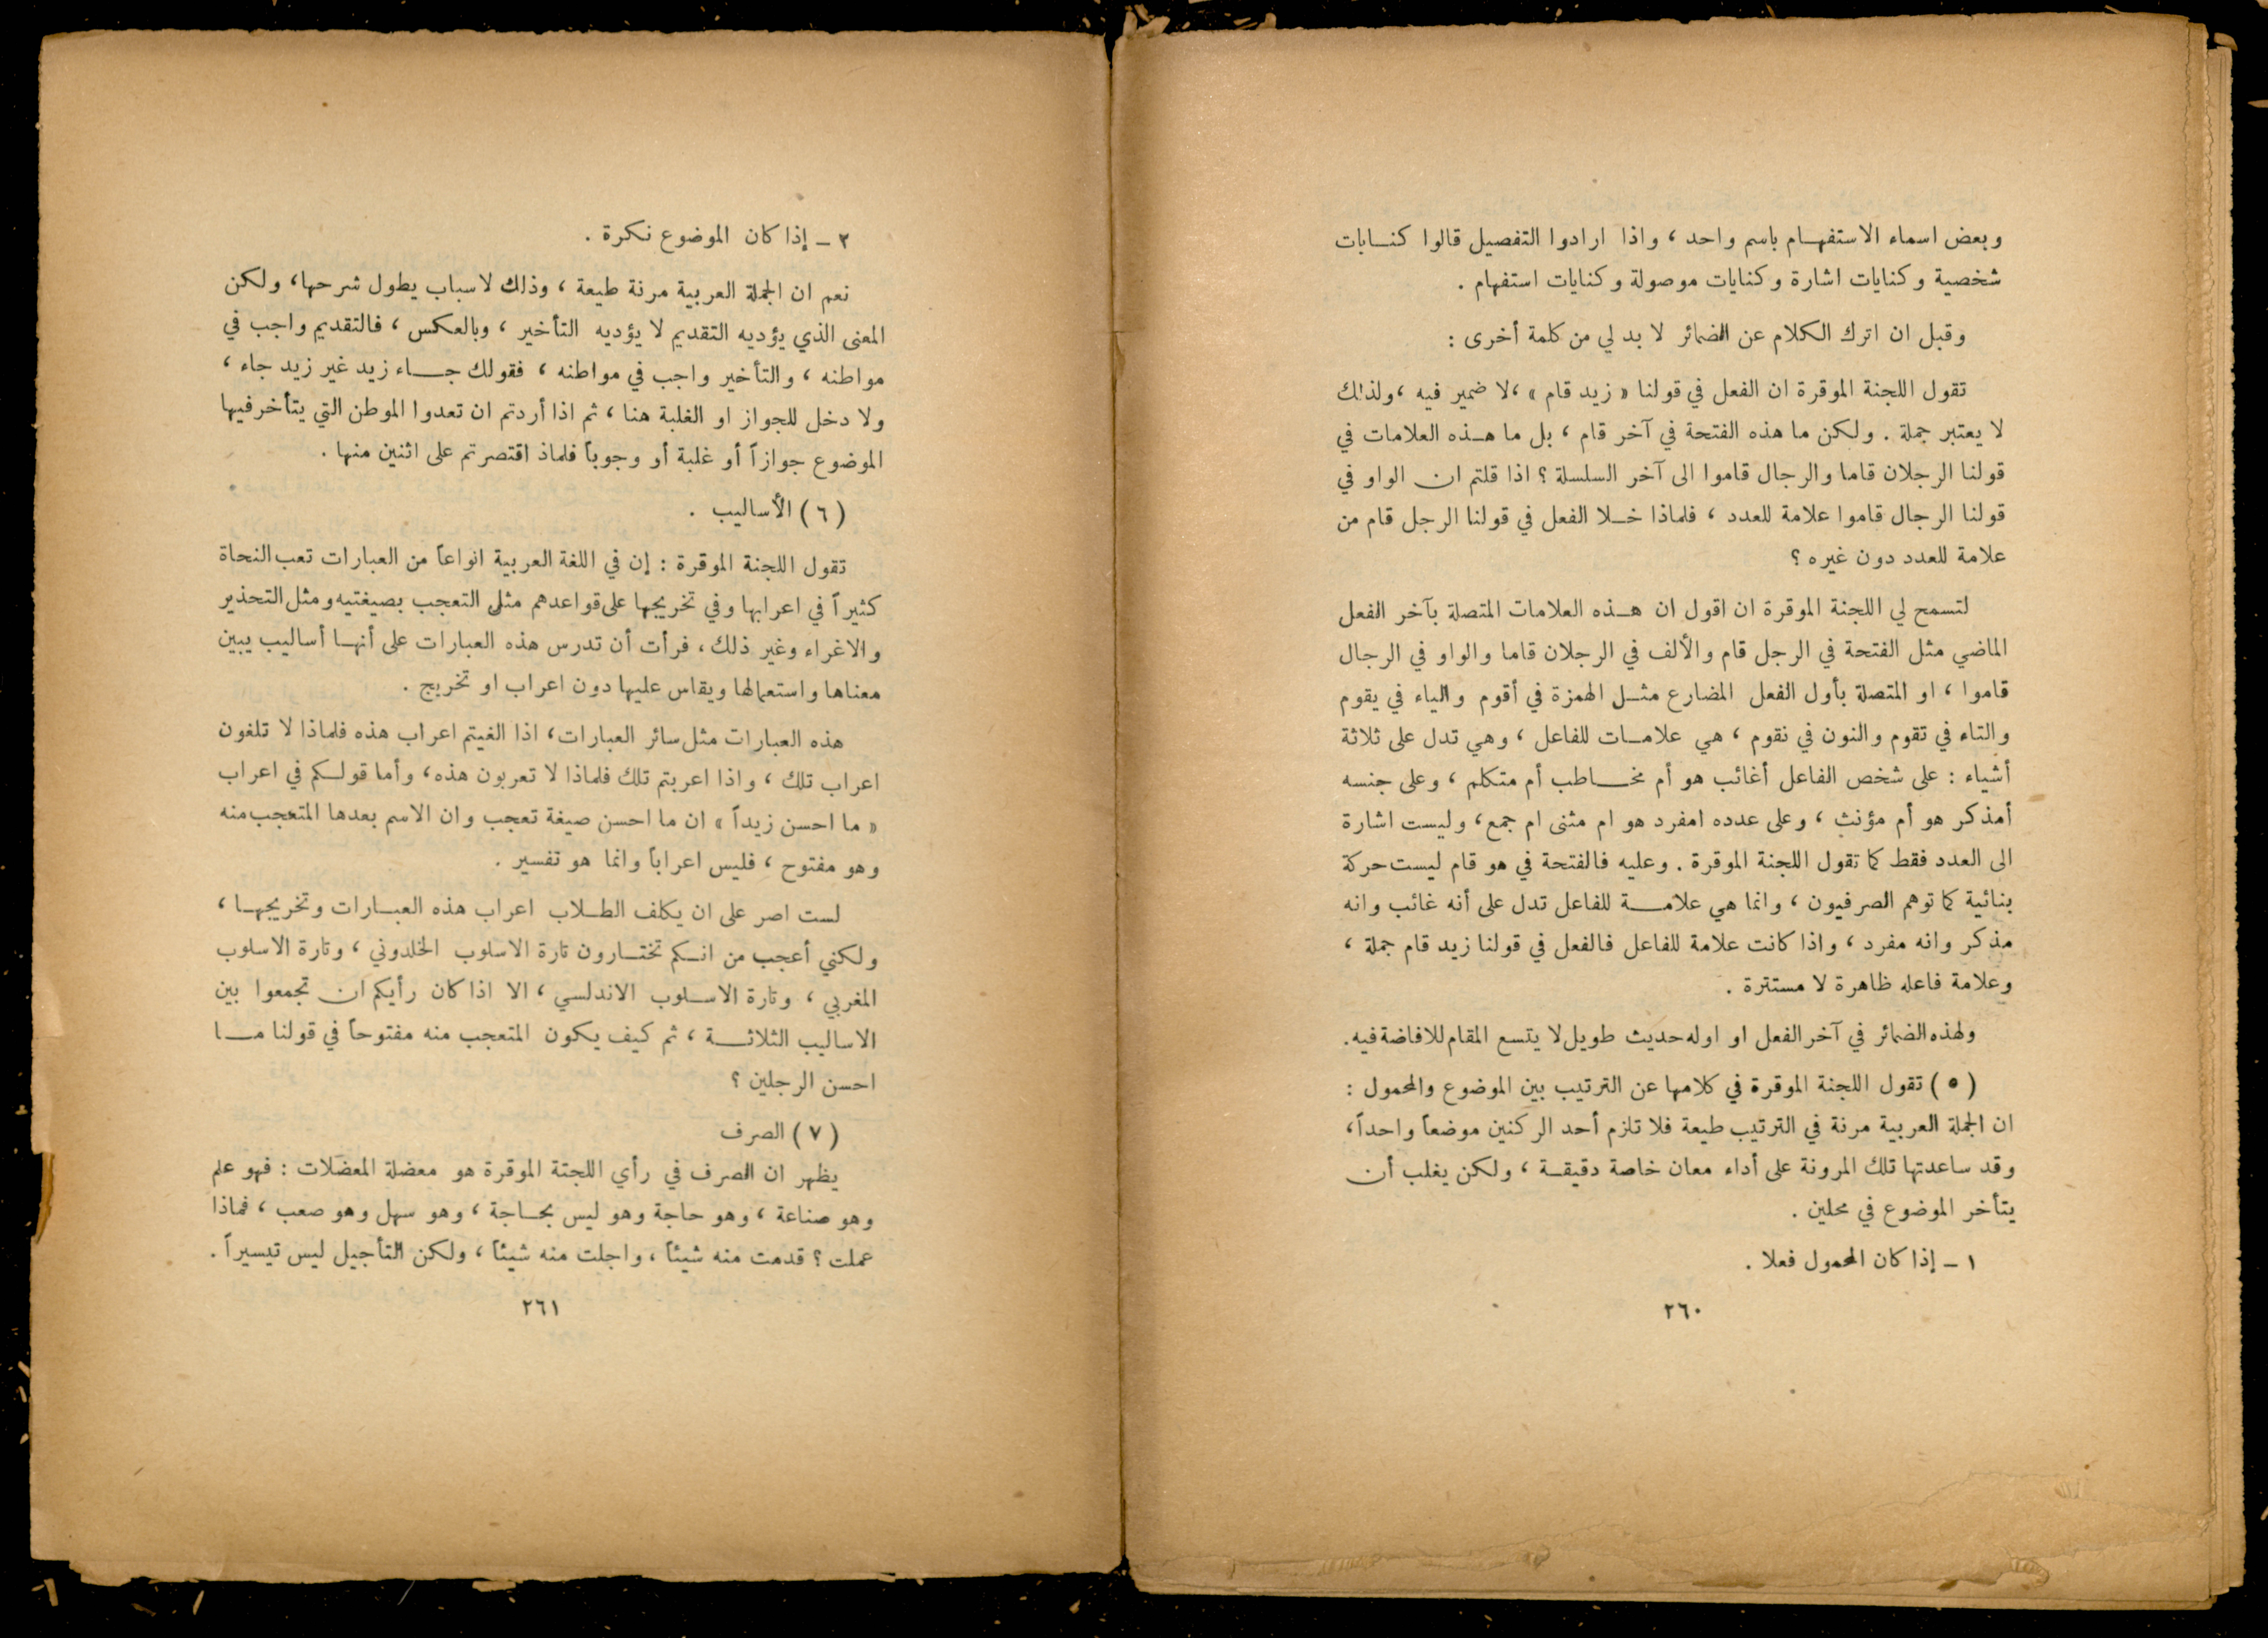 وبعض اسماء الاستفهام باسم واحد ، واذا ارادوا التفصيل قالوا كنايات
شخصية وكنايات اشارة وكنايات موصولة وكنايات استفهام .
وقبل ان اترك الكلام عن الضمائر لا بد لي من كلمة أخرى :
تقول اللجنة الموقرة ان الفعل في قولنا « زيد قام » ،لا ضمير فيه ،ولذلك
لا يعتبر جملة . ولكن ما هذه الفتحة في آخر قام ، بل ما هذه العلامات في
قولنا الرجلان قاما والرجال قاموا الى آخر السلسلة ؟ اذا قلتم ان الواو في
قولنا الرجال قاموا علامة للعدد ، فلماذا خلا الفعل في قولنا الرجل قام من
علامة للعدد دون غيره ؟
لتسمح لي اللجنة الموقرة ان اقول ان هذه العلامات المتصلة بآخر الفعل
الماضي مثل الفتحة في الرجل قام والألف في الرجلان قاما والواو في الرجال
قاموا ، او المتصلة بأول الفعل المضارع مثل الهمزة في أقوم والياء في يقوم
والتاء في تقوم والنون في نقوم ، هي علامات للفاعل ، وهي تدل على ثلاثة
أشياء : على شخص الفاعل أغائب هو أم مخاطب أم متكلم ، وعلى جنسه
أمذكر هو أم مؤنث ، وعلى عدده امفرد هو ام مثنى ام جمع، وليست اشارة
الى العدد فقط كما تقول اللجنة الموقرة . وعليه فالفتحة في هو قام ليست حركة
بنائية كما توهم الصرفيون ، وانما هي علامة للفاعل تدل على أنه غائب وانه
مذكر وانه مفرد ، واذا كانت علامة للفاعل فالفعل في قولنا زيد قام جملة ،
وعلامة فاعله ظاهرة لا مستترة .
ولهذه الضمائر في آخر الفعل او اوله حديث طويل لا يتسع المقام للافاضة فيه.
( ٥ ) تقول اللجنة الموقرة في كلامها عن الترتيب بين الموضوع والمحمول :
ان الجملة العربية مرنة في الترتيب طيعة فلا تلزم أحد الركنين موضعاً واحداً،
وقد ساعدتها تلك المرونة على أداء معان خاصة دقيقة ، ولكن يغلب أن
يتأخر الموضوع في محلين .
١ ـ إذا كان المحمول فعلا .
٢٦٠
٢ ـ إذا كان الموضوع نكرة .
نعم ان الجملة العربية مرنة طيعة ، وذلك لاسباب يطول شرحها، ولكن
المعنى الذي يؤديه التقديم لا يؤديه التأخير ، وبالعكس ، فالتقديم واجب في
مواطنه ، والتأخير واجب في مواطنه ، فقولك جاء زيد غير زيد جاء ،
ولا دخل للجواز او الغلبة هنا ، ثم اذا أردتم ان تعدوا الموطن التي يتأخر فيها
الموضوع جوازاً أو غلبة أو وجوباً فلماذ اقتصرتم على اثنين منها .
( ٦ ) الأساليب .
تقول اللجنة الموقرة : إن في اللغة العربية انواعاً من العبارات تعب النحاة
كثيراً في اعرابها وفي تخريجها على قواعدهم مثل التعجب بصيغتيه ومثل التحذير
والاغراء وغير ذلك، فرأت أن تدرس هذه العبارات على أنها أساليب يبين
معناها واستعمالها ويقاس عليها دون اعراب او تخريج .
هذه العبارات مثل سائر العبارات، اذا الغيتم اعراب هذه فلماذا لا تلغون
اعراب تلك ، واذا اعربتم تلك فلماذا لا تعربون هذه، وأما قولكم في اعراب
« ما احسن زيداً » ان ما احسن صيغة تعجب وان الاسم بعدها المتعجب منه
وهو مفتوح ، فليس اعراباً وانما هو تفسير .
لست اصر على ان يكلف الطلاب اعراب هذه العبارات وتخريجها ،
ولكني أعجب من انكم تختارون تارة الاسلوب الخلدوني ، وتارة الاسلوب
المغربي ، وتارة الاسلوب الاندلسي ، الا اذا كان رأيكم ان تجمعوا بين
الاساليب الثلاثة ، ثم كيف يكون المتعجب منه مفتوحاً في قولنا ما
احسن الرجلين ؟
( ٧ ) الصرف
يظهر ان الصرف في رأي اللجتة الموقرة هو معضلة المعضلات : فهو علم
وهو صناعة ، وهو حاجة وهو ليس بحاجة ، وهو سهل وهو صعب ، فماذا
عملت ؟ قدمت منه شيئاً ، واجلت منه شيئاً ، ولكن التأجيل ليس تيسيراً .
٢٦١